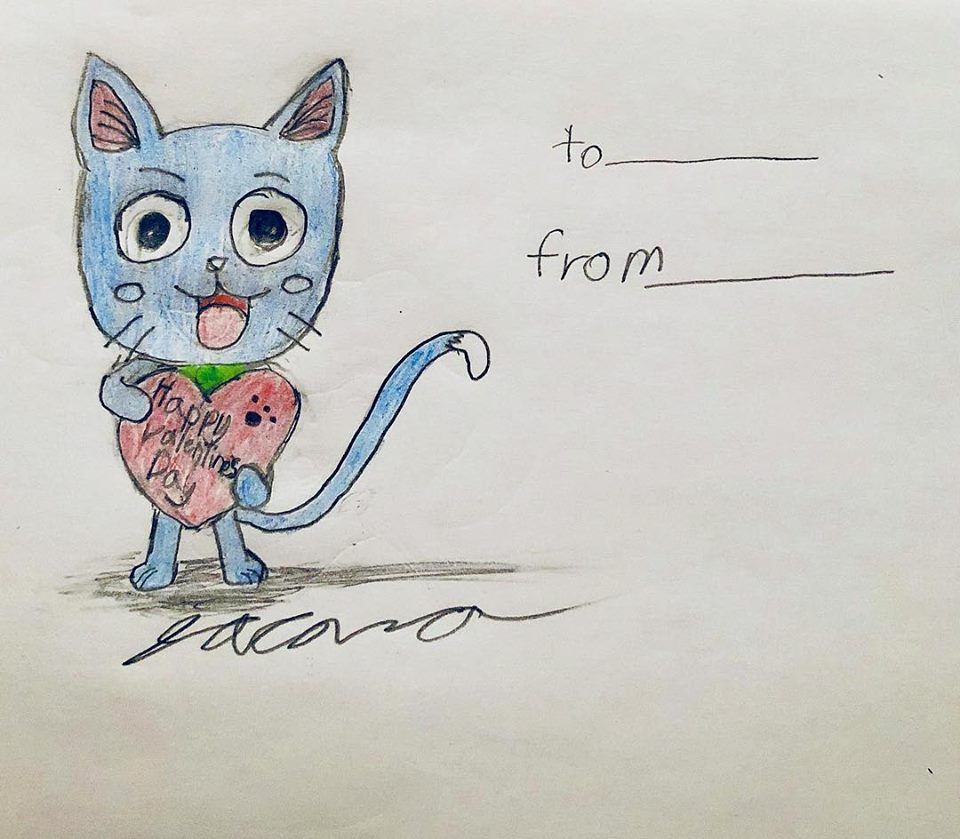 to
from
Happy
Valentines
Day